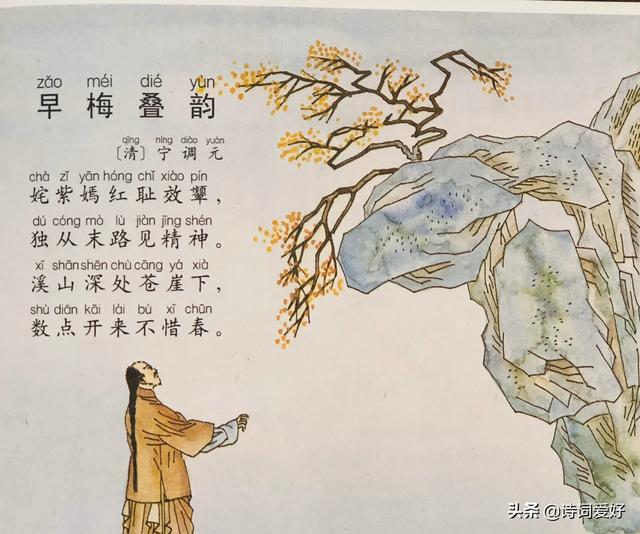 zǎo méi dié yùn
早梅叠韵
qīng níng diào yuán
〔清〕宁调元
chà zǐ yān hóng chǐ xiào pín
姹紫嫣红耻效颦，
dú cóng mò lù jiàn jīng shén
独从末路见精神。
xī shān shēn chù cāng yá xià
溪山深处苍崖下，
shù diǎn kāi lái bù xī chūn
数点开来不惜春。
头条 @诗词爱好